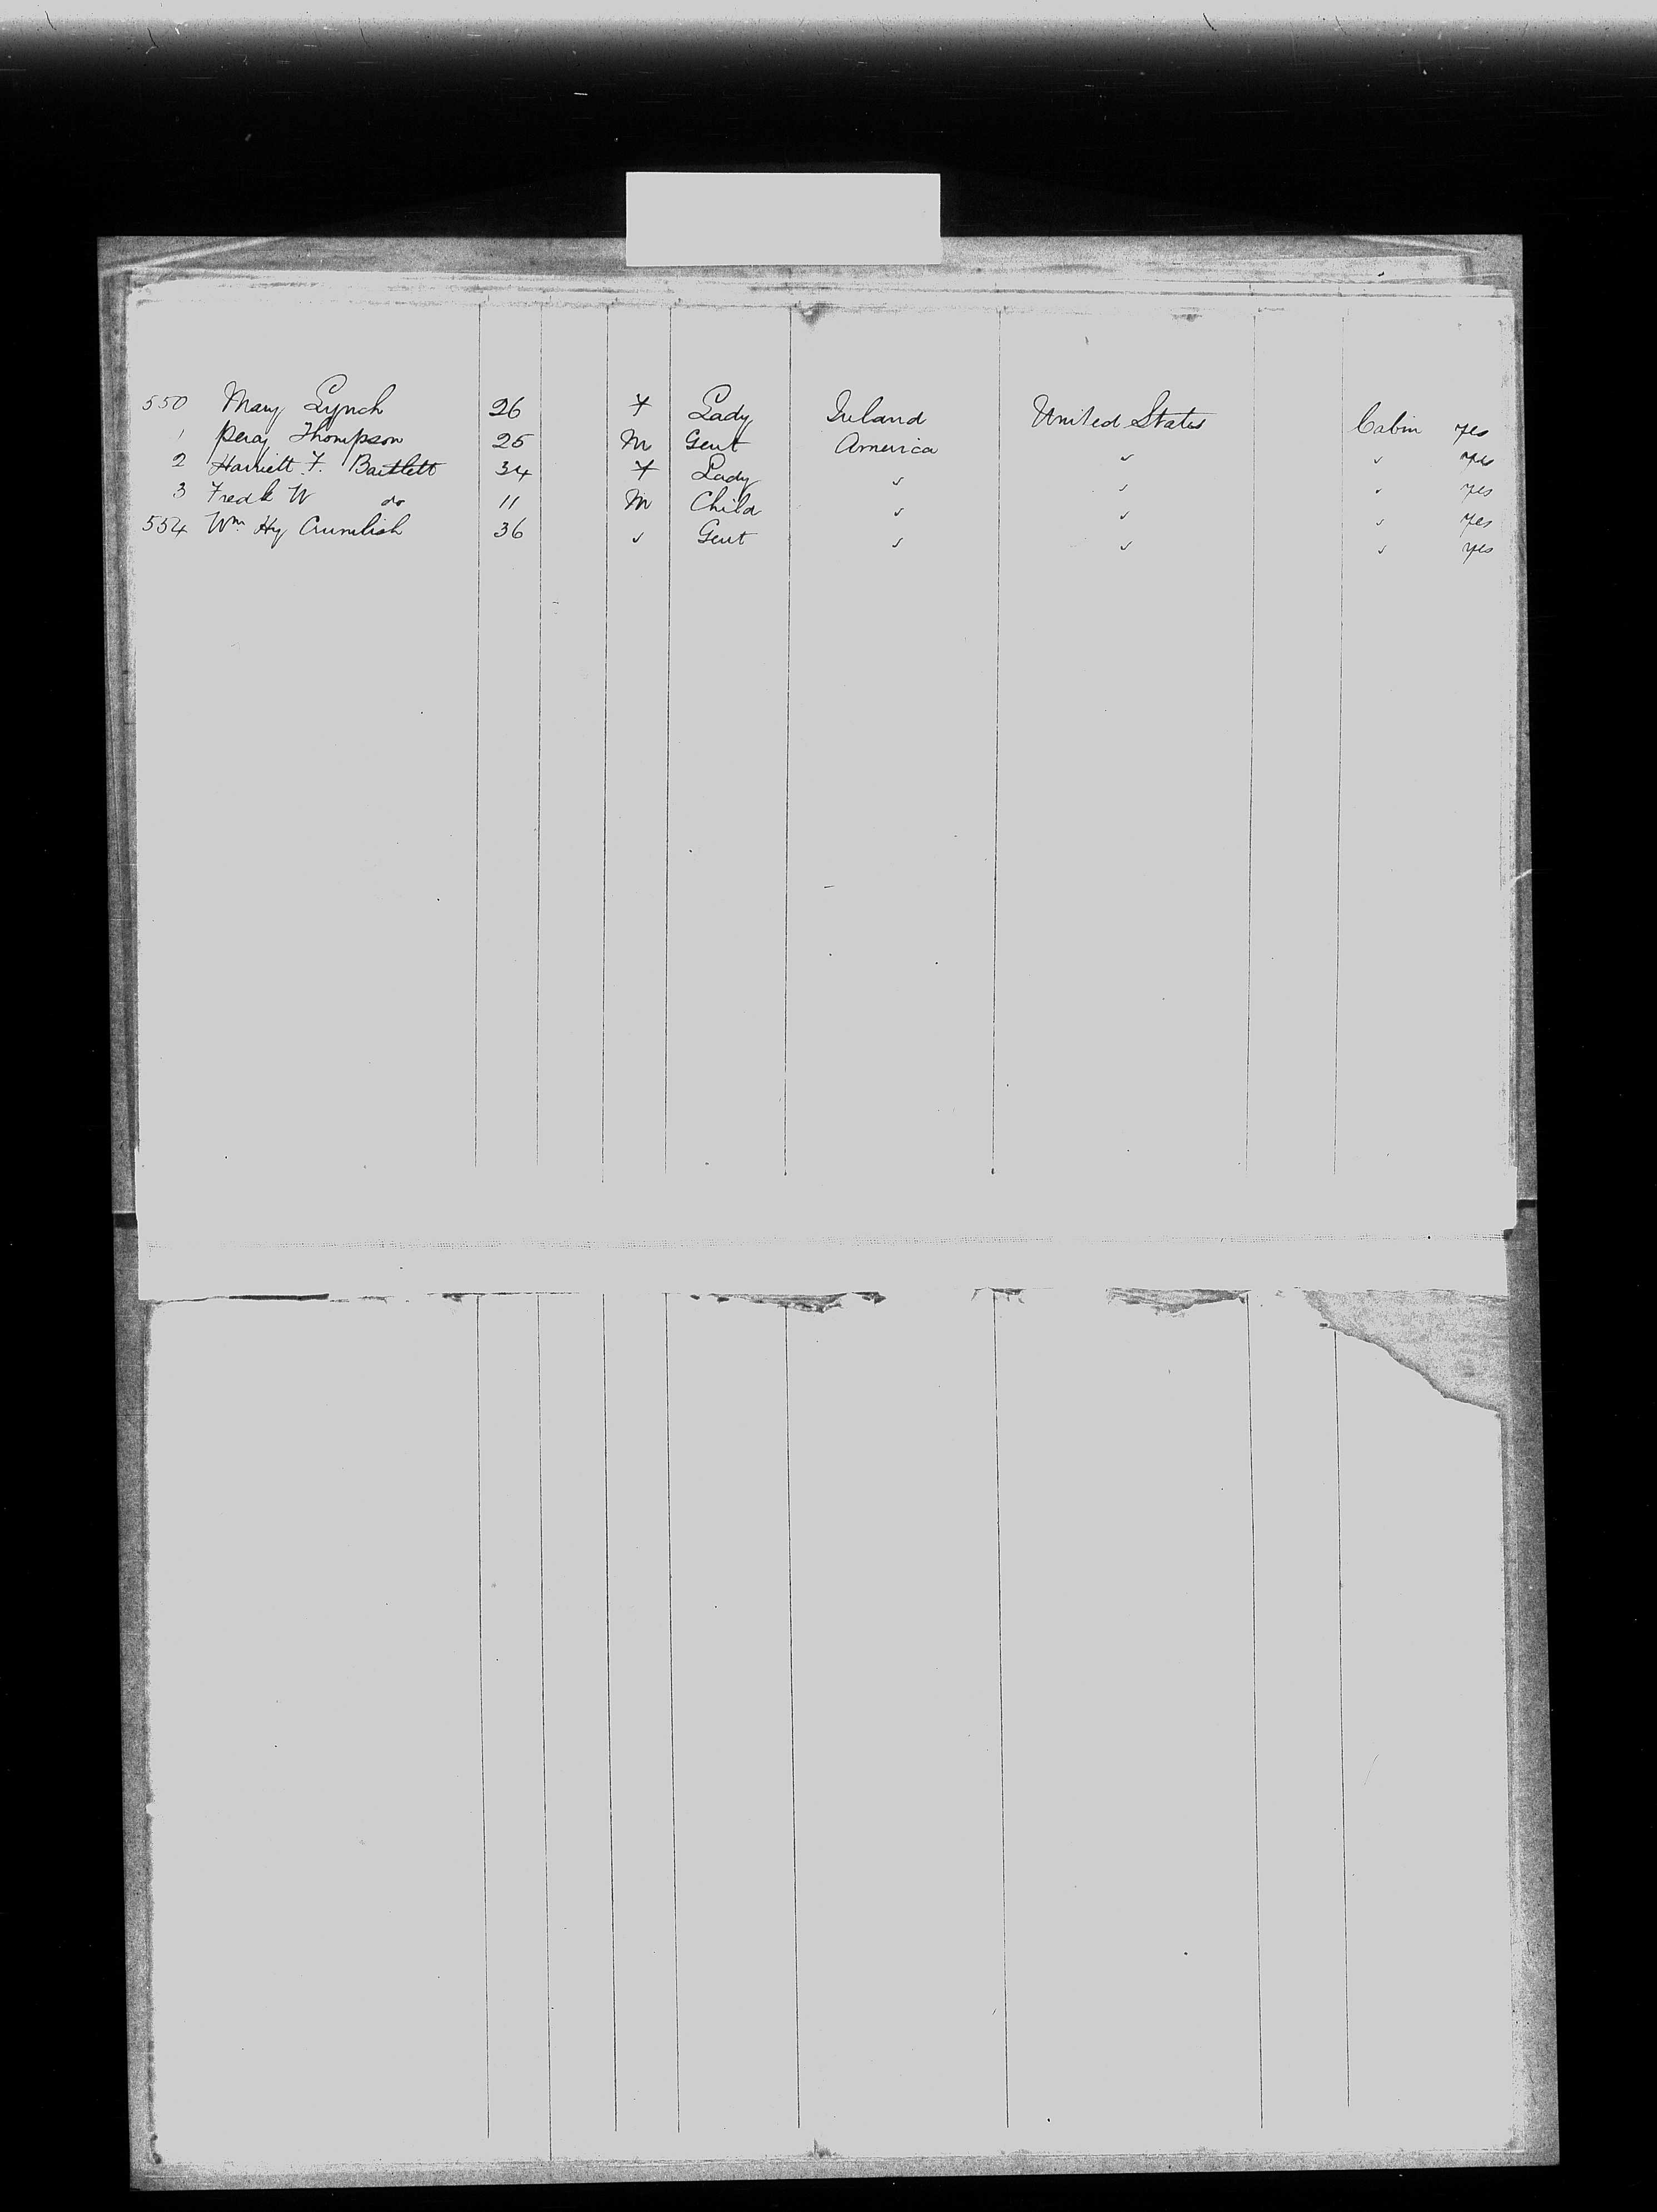 550 Mary Lynch 26 F Lady Ireland United States Cabin yes
1 Percy Thompson 25 M Gent America " " yes
2 Harriett F. Bartlett 34 F Lady " " " yes
3 Fredk W do 11 M Child " " " yes
554 Wm Hy 36 " Gent " " " yes